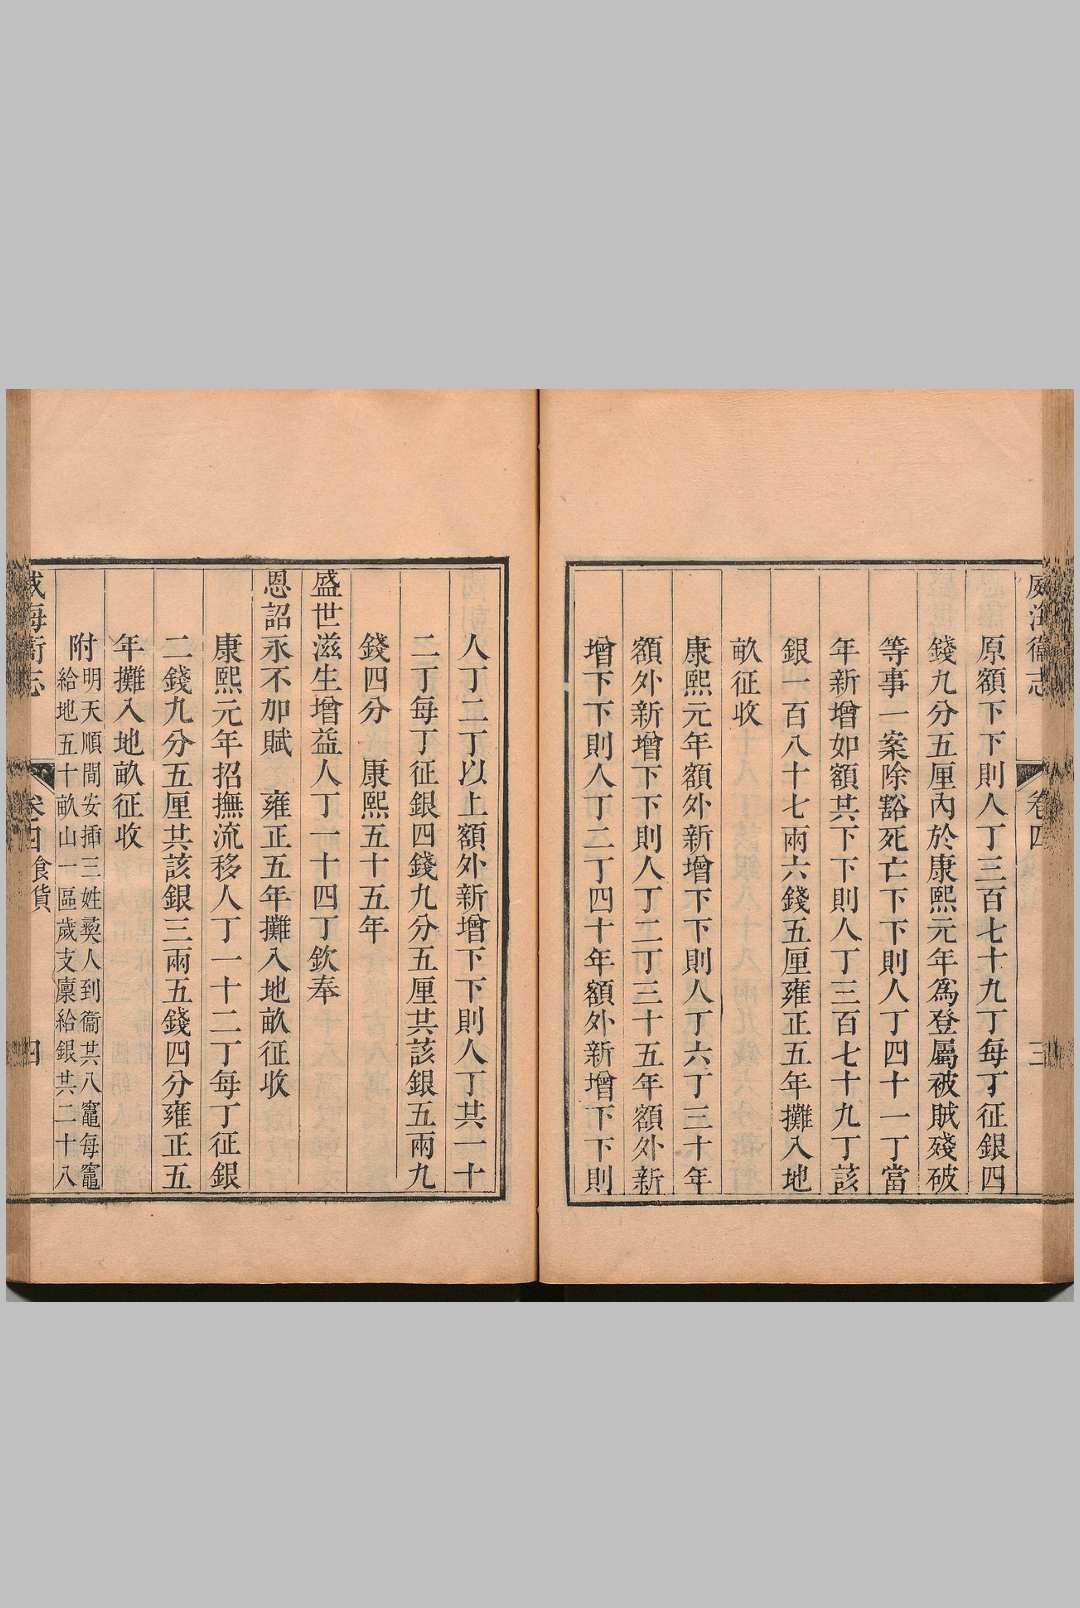 威海衛志 卷四 三
原額下下則人丁三百七十九丁每丁征銀四
錢九分五厘內於康熙元年為登屬被賊殘破
等事一案除豁死亡下下則人丁四十一丁當
年新增如額共下下則人丁三百七十九丁該
銀一百八十七兩六錢五厘雍正五年攤入地
畝征收
康熙元年額外新增下下則人丁六丁三十年
額外新增下下則人丁二丁三十五年額外新
增下下則人丁二丁四十年額外新增下下則
人丁二丁以上額外新增下下則人丁共一十
二丁每丁征銀四錢九分五厘共該銀五兩九
錢四分 康熙五十五年
盛世滋生增益人丁一十四丁欽奉
恩詔永不加賦 雍正五年攤入地畝征收
康熙元年招撫流移人丁一十二丁每丁征銀
二錢九分五厘共該銀三兩五錢四分雍正五
年攤入地畝征收
附明天順間安揷三姓爨人到衞共八竈每竈
給地五十畝山一區歲支廩給銀共二十八
威海衛志 卷四食貨 四